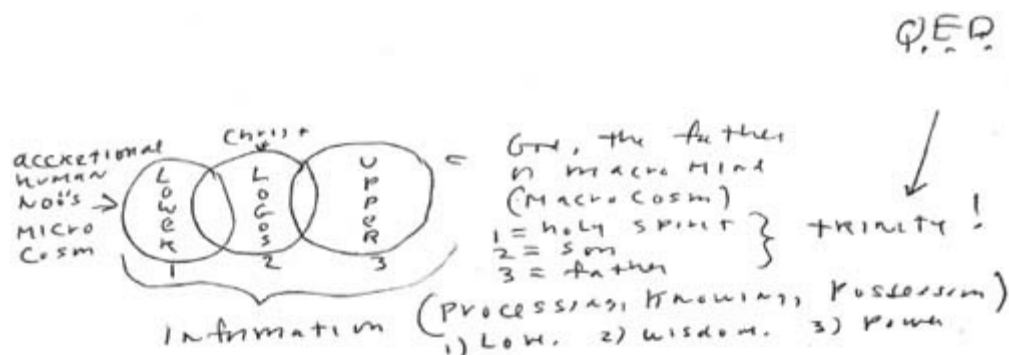 Q.E.D.
accretional
human
Noös
micro
cosm
Christ
LOWER
LOGOS
UPPER
1
2
3
= God, the father
n macro mind
(macrocosm)
1 = holy spirit
2 = son
3 = father
trinity!
information
(processing, knowing, possession)
1) Love. 2) wisdom. 3) power